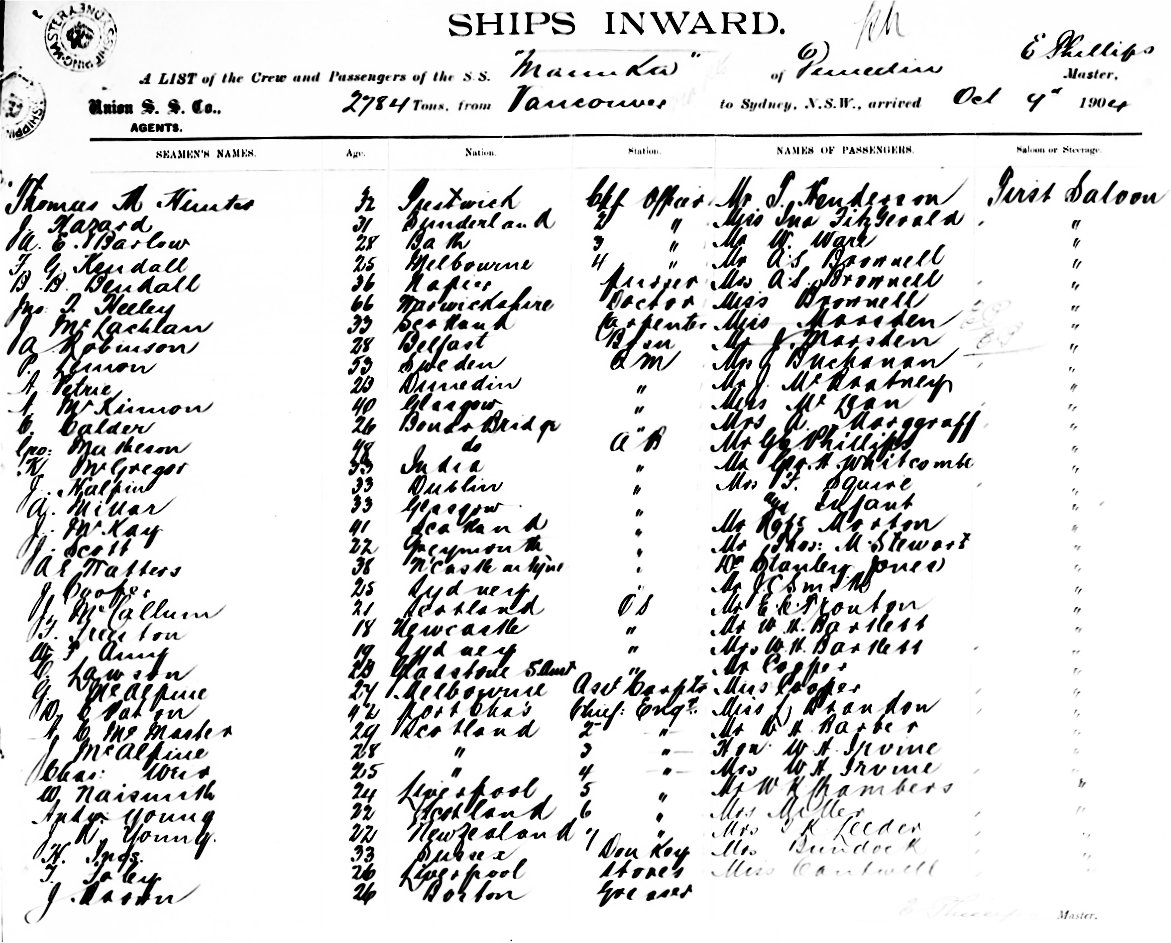 SHIPS INWARD.
E Phillips
A LIST of the Crew and Passengers of the S.S. "Manuka" of Dunedin Master,
Union S. S. Co., 2784 Tons, from Vancouver to Sydney, N.S.W., arrived Oct 1904
AGENTS.
SEAMEN'S NAMES. Age. Nation. Station. NAMES OF PASSENGERS. Saloon or Steerage.
Thomas M 32 Chf Officer Mr T. Henderson First Saloon
J. Hazard 31 Sunderland 2 " Miss Ina FitzGerald "
A. E. Barlow 28 Bath 3 " Mr W. Ware "
F. G. Kendall 25 Melbourne 4 " Mr A.S. Brownell "
B. B. Bendall 36 Napier Purser Mrs A.S. Brownell "
Jno. F. Keeley 66 Warwickshire Doctor Miss Brownell "
J McLachlan 33 Scotland Carpenter Miss Marsden "
A Robinson 28 Belfast Bosn Mr J. Marsden "
P. Lemon 53 Sweden Q M Mrs J Buchanan "
A Petrie 23 Dunedin " Mr J. McCartney "
A McKinnon 40 Glasgow " Miss "
C Calder 26 Bonar Bridge " Mrs A. Marggraff "
Geo: Matheson 48 do A B Mr Phillips "
K. McGregor 33 India " Mr Geo. H. Whitcombe "
J. Halpin 33 Dublin " Mrs F. Squire "
A. Millar 33 Glasgow " Infant "
J. McKay 41 Scotland " Mr Robt Morton "
J. Scott 22 Greymouth " Mr Thos: M. Stewart "
A E Watters 38 N'Castle on Tyne " Dr Stanley Jones "
J Cooper 25 Sydney " Mr J C Smith "
J. McCallum 21 Scotland O S Mr E. C. "
F. 18 Newcastle " Mr W. H. Bartlett "
W. F. 19 Sydney " Mrs W. H. Bartlett "
C Lawson 23 Gladstone S Aust " Mr Cooper "
G. McAlpine 27 Melbourne Asst Carptr Miss Cooper "
D. C Paton 42 Port Chas Chief Engr. Miss J Brandon "
A C McMaster 29 Scotland 2 " Mr W H Barber "
J McAlpine 28 " 3 " Hon W. H. Irvine "
Chas: Weir 25 " 4 " Mrs W. H. Irvine "
W. Naismith 24 Liverpool 5 " Mr W K Chambers "
Andw. Young 22 Scotland 6 " Mrs Miller "
J. R. Young. 22 New Zealand 7 " Mrs J K Leeder "
H. 33 Sussex Donkey Mrs Bundock "
F. 26 Liverpool Stores Miss Cantwell "
J. 26 Greaser
Master.